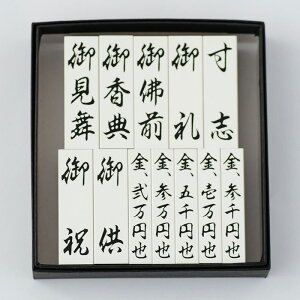 寸志
御礼
御佛前
御香典
御見舞
金、参千円也
金、壱万円也
金、五千円也
金、参万円也
金、弐万円也
御供
御祝